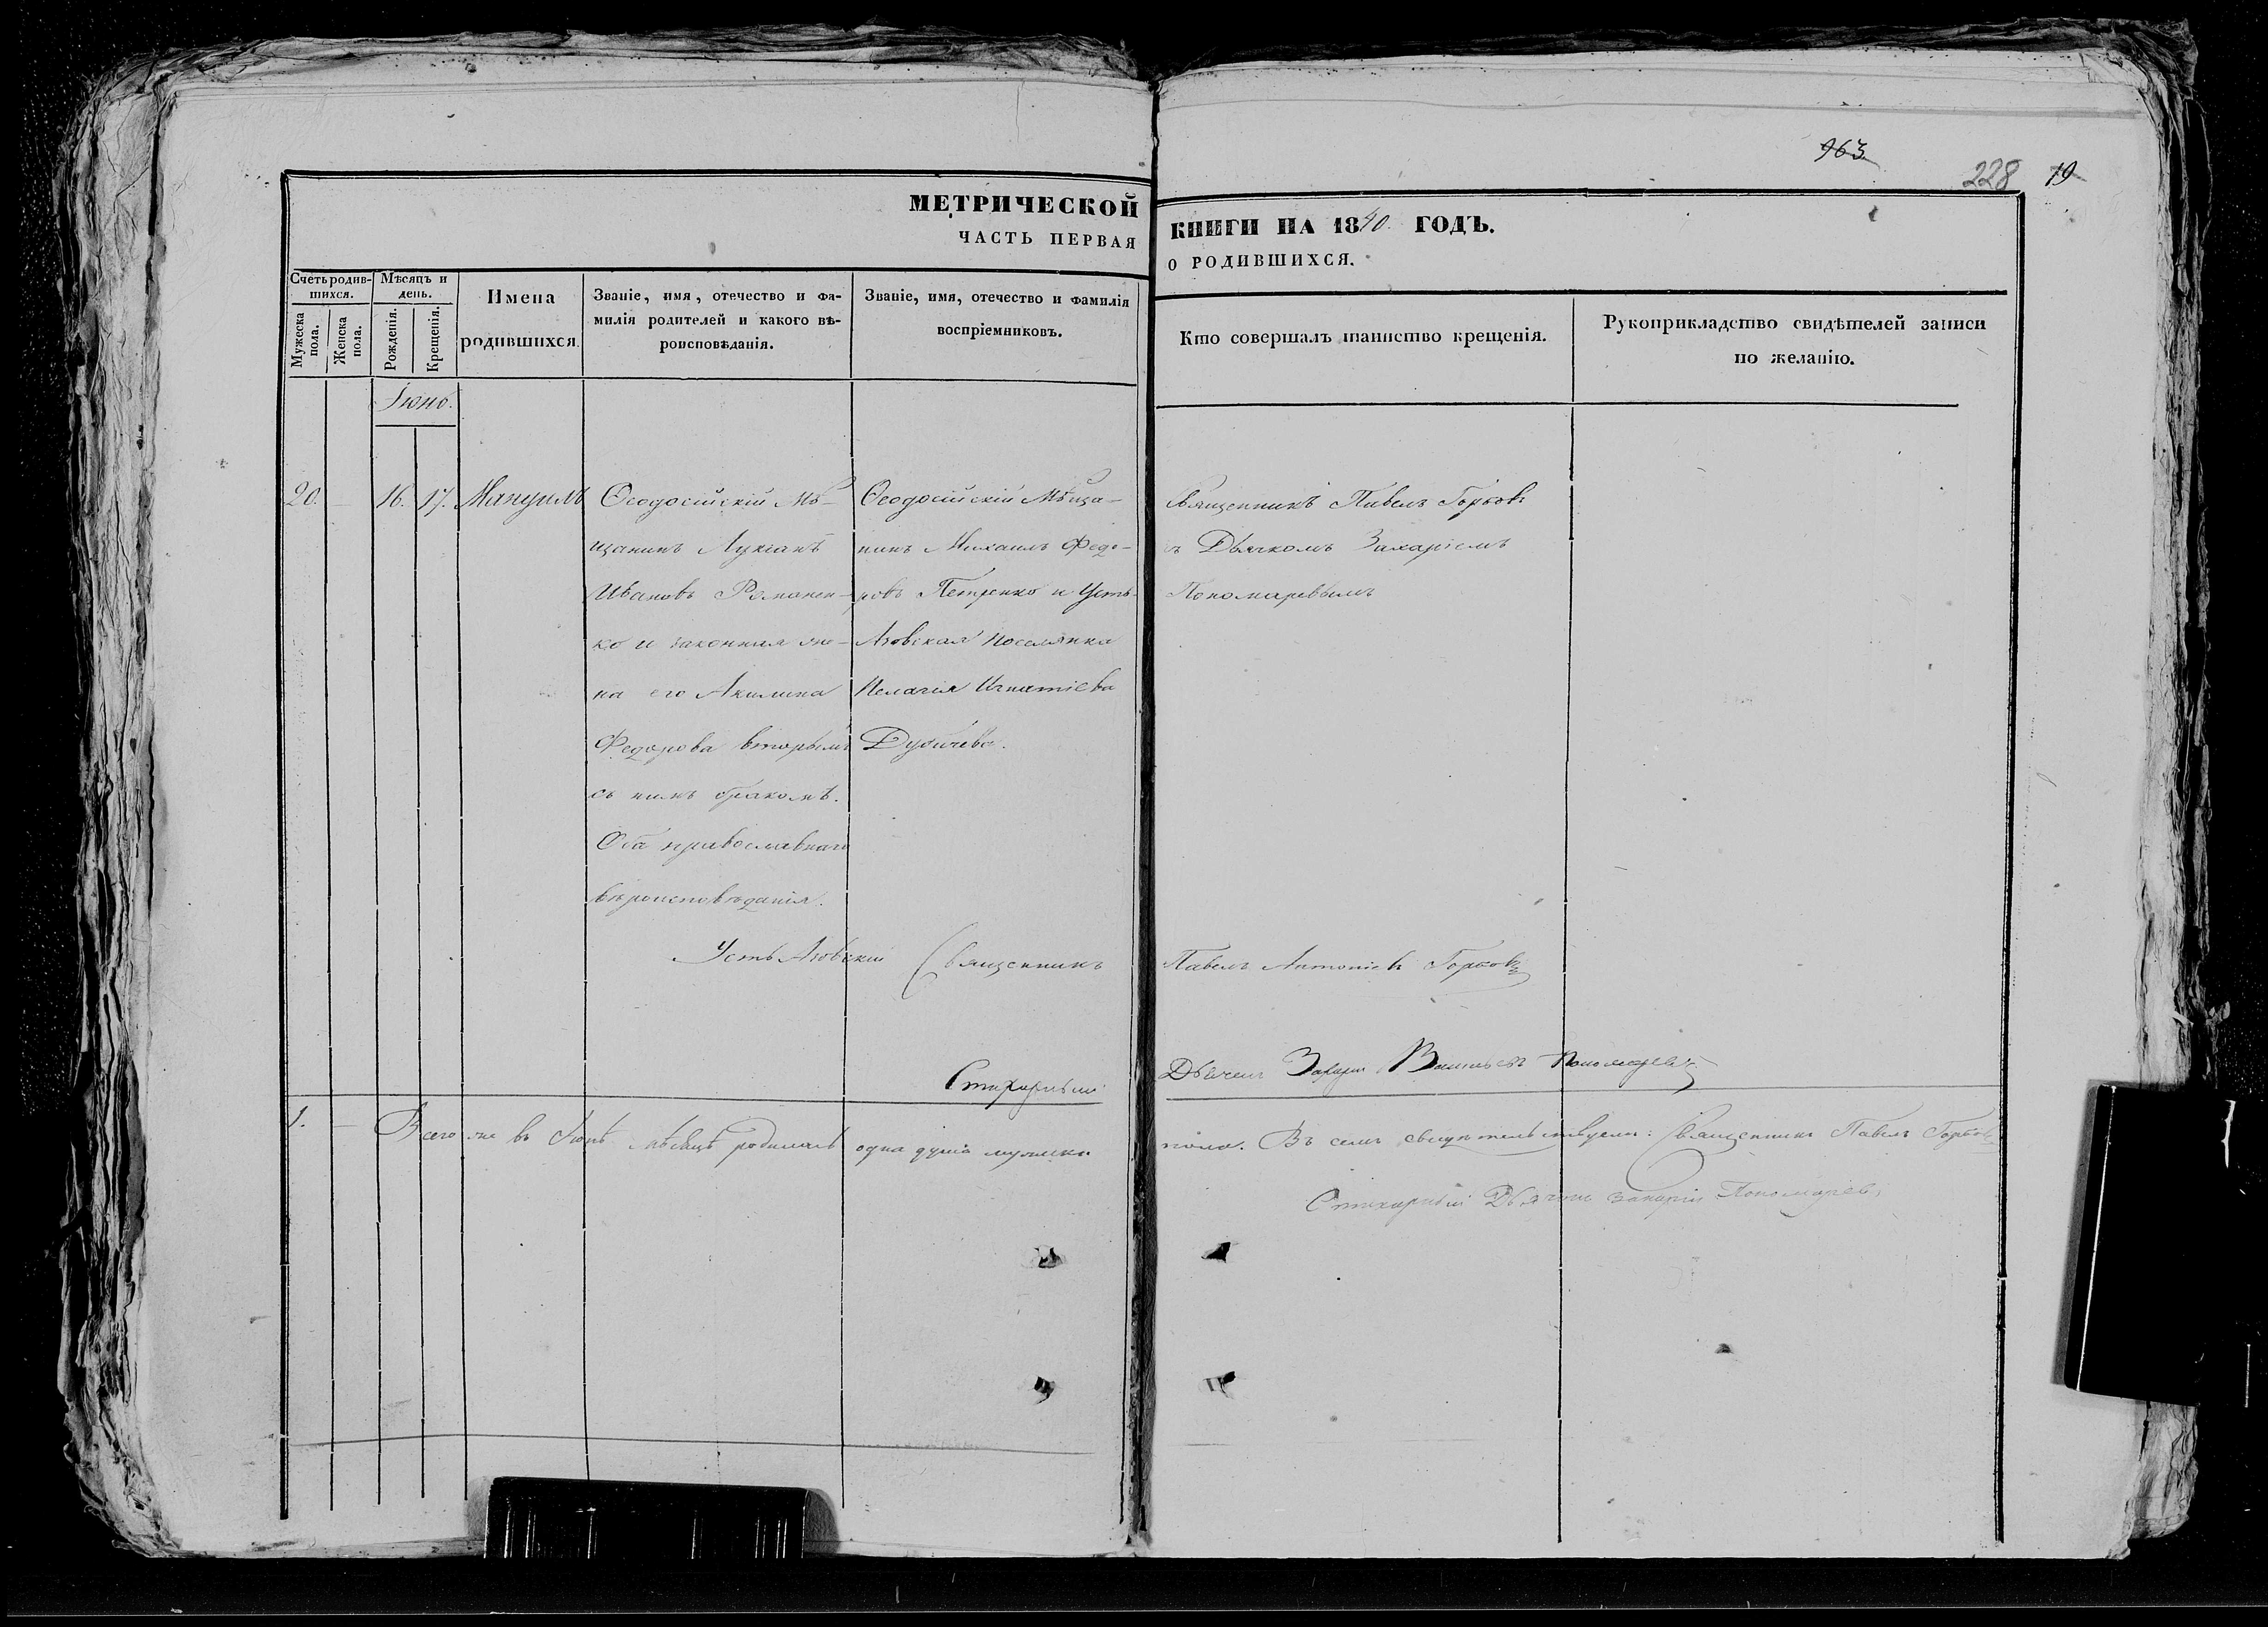 963
228 19
МЕТРИЧЕСКОЙ КНИГИ НА 1840. ГОДЪ.
ЧАСТЬ ПЕРВАЯ О РОДИВШИХСЯ.
Счетъ родившихся.
Мужеска пола.
Женска пола.
Мѣсяцъ и день.
Рожденія.
Крещенія.
Имена
родившихся.
Званіе, имя, отечество и фа-
милія родителей и какого вѣ-
роисповѣданія.
Званіе, имя, отечество и фамилія
воспріемниковъ.
Кто совершалъ таинство крещенія.
Рукоприкладство свидѣтелей записи
по желанію.
Іюнь.
20. — 16. 17. Мануилъ
Ѳеодосійскій Мѣ-
щанинъ Лукіанъ
Ивановъ Романен-
ко и законная же-
на его Акилина
Федорова вторымъ
съ нимъ бракомъ.
Оба православнаго
вѣроисповѣданія.
Ѳеодосійскій Мѣща-
нинъ Михаилъ Федо-
ровъ Петренко и Усть-
Азовская поселянка
Пелагія Игнатіева
Дубичева.
Священникъ Павелъ Горьовъ
съ Дьячкомъ Захаріемъ
Пономаревымъ
Усть Азовскій Священникъ Павелъ Антоніевъ Горьовъ
Стихарный Дьячекъ Захарій Васильевъ Пономаревъ
1. — Всего же въ Іюнѣ мѣсяцѣ родилась одна душа мужеска пола. Въ семъ свидѣтельствуемъ: Священникъ Павелъ Горьовъ
Стихарный Дьячекъ Захарій Пономарев